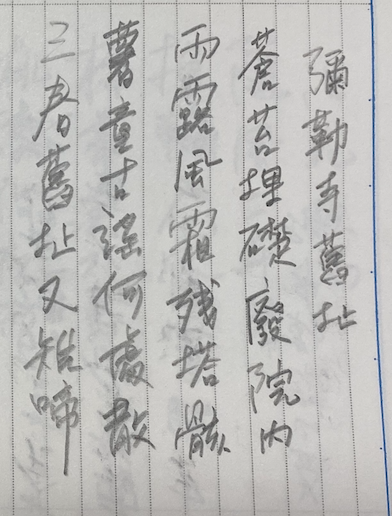 彌勒寺舊址
蒼苔埋礎廢院内
雨露風霜残塔骸
薯童古謠何處散
三春舊址又雉啼